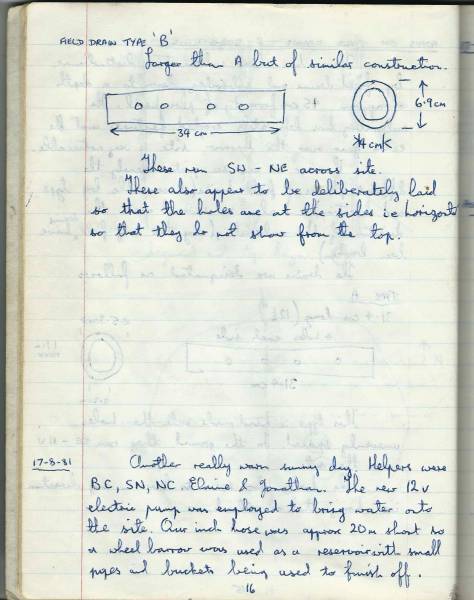 FIELD DRAIN TYPE 'B'
Larger than A but of similar construction.
6.9cm
34 cm
4cm
These run SW - NE across site.
These also appear to be deliberately laid
so that the holes are at the sides i.e horizontal
so that they do not show from the top.
17-8-81 Another really warm sunny day. Helpers were
BC, SN, NC, Elaine & Jonathan. The new 12v
electric pump was employed to bring water onto
the site. Our inch hose was approx 20m short so
a wheel barrow was used as a reservoir with small
pipes and buckets being used to finish off.
16